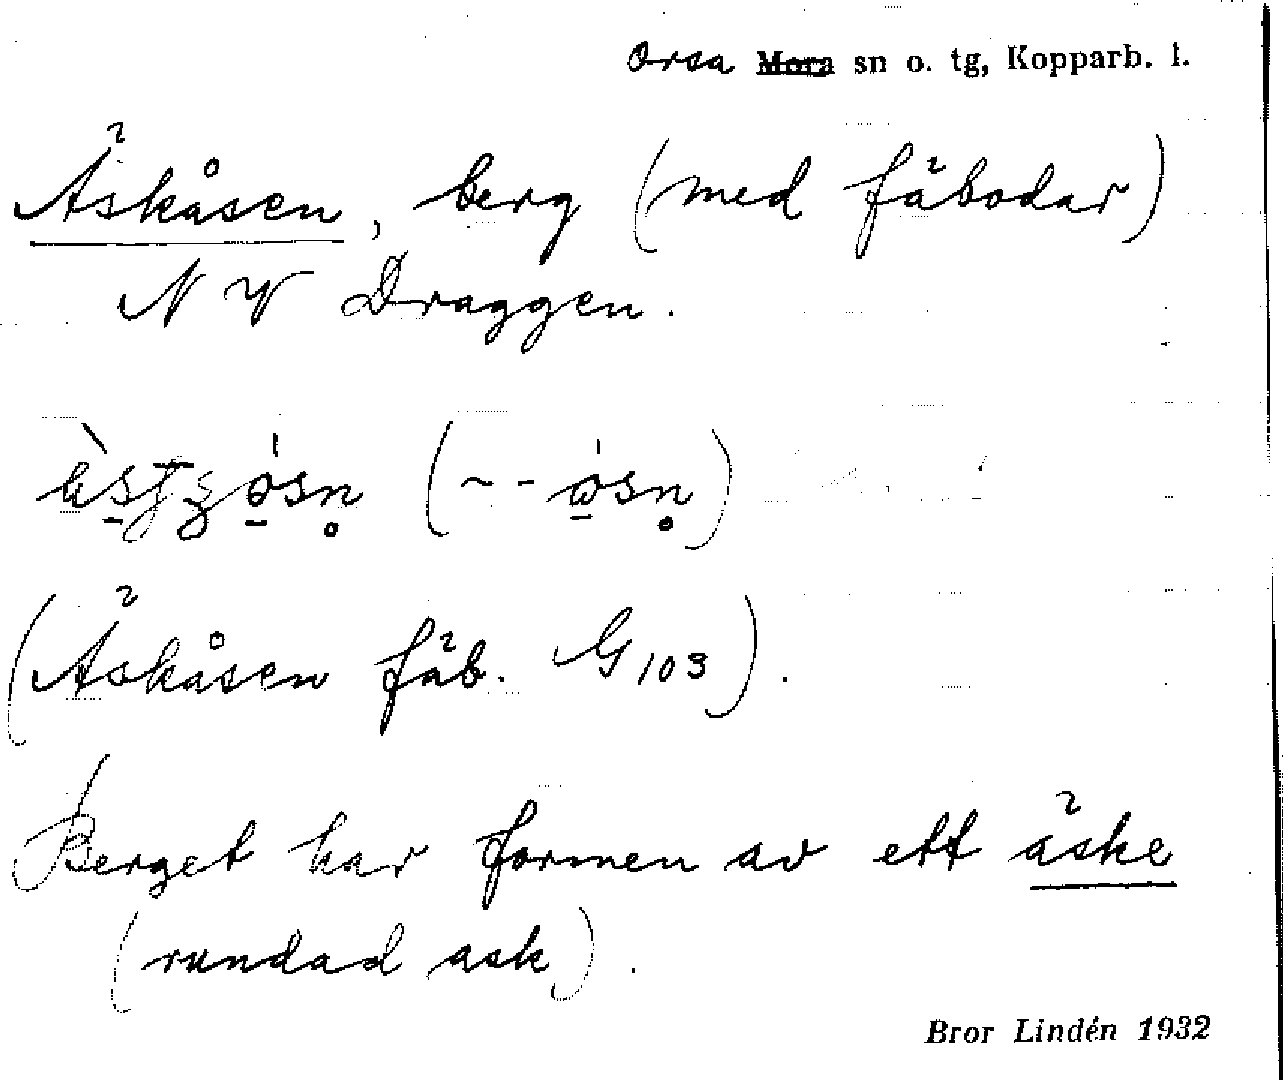 Orsa Mora sn o. tg, Kopparb. l.
Äskåsen, berg (med fäbodar)
NV Draggen.
(Äskåsen fäb. G103).
Berget har formen av ett äske
(rundad ask).
Bror Lindén 1932